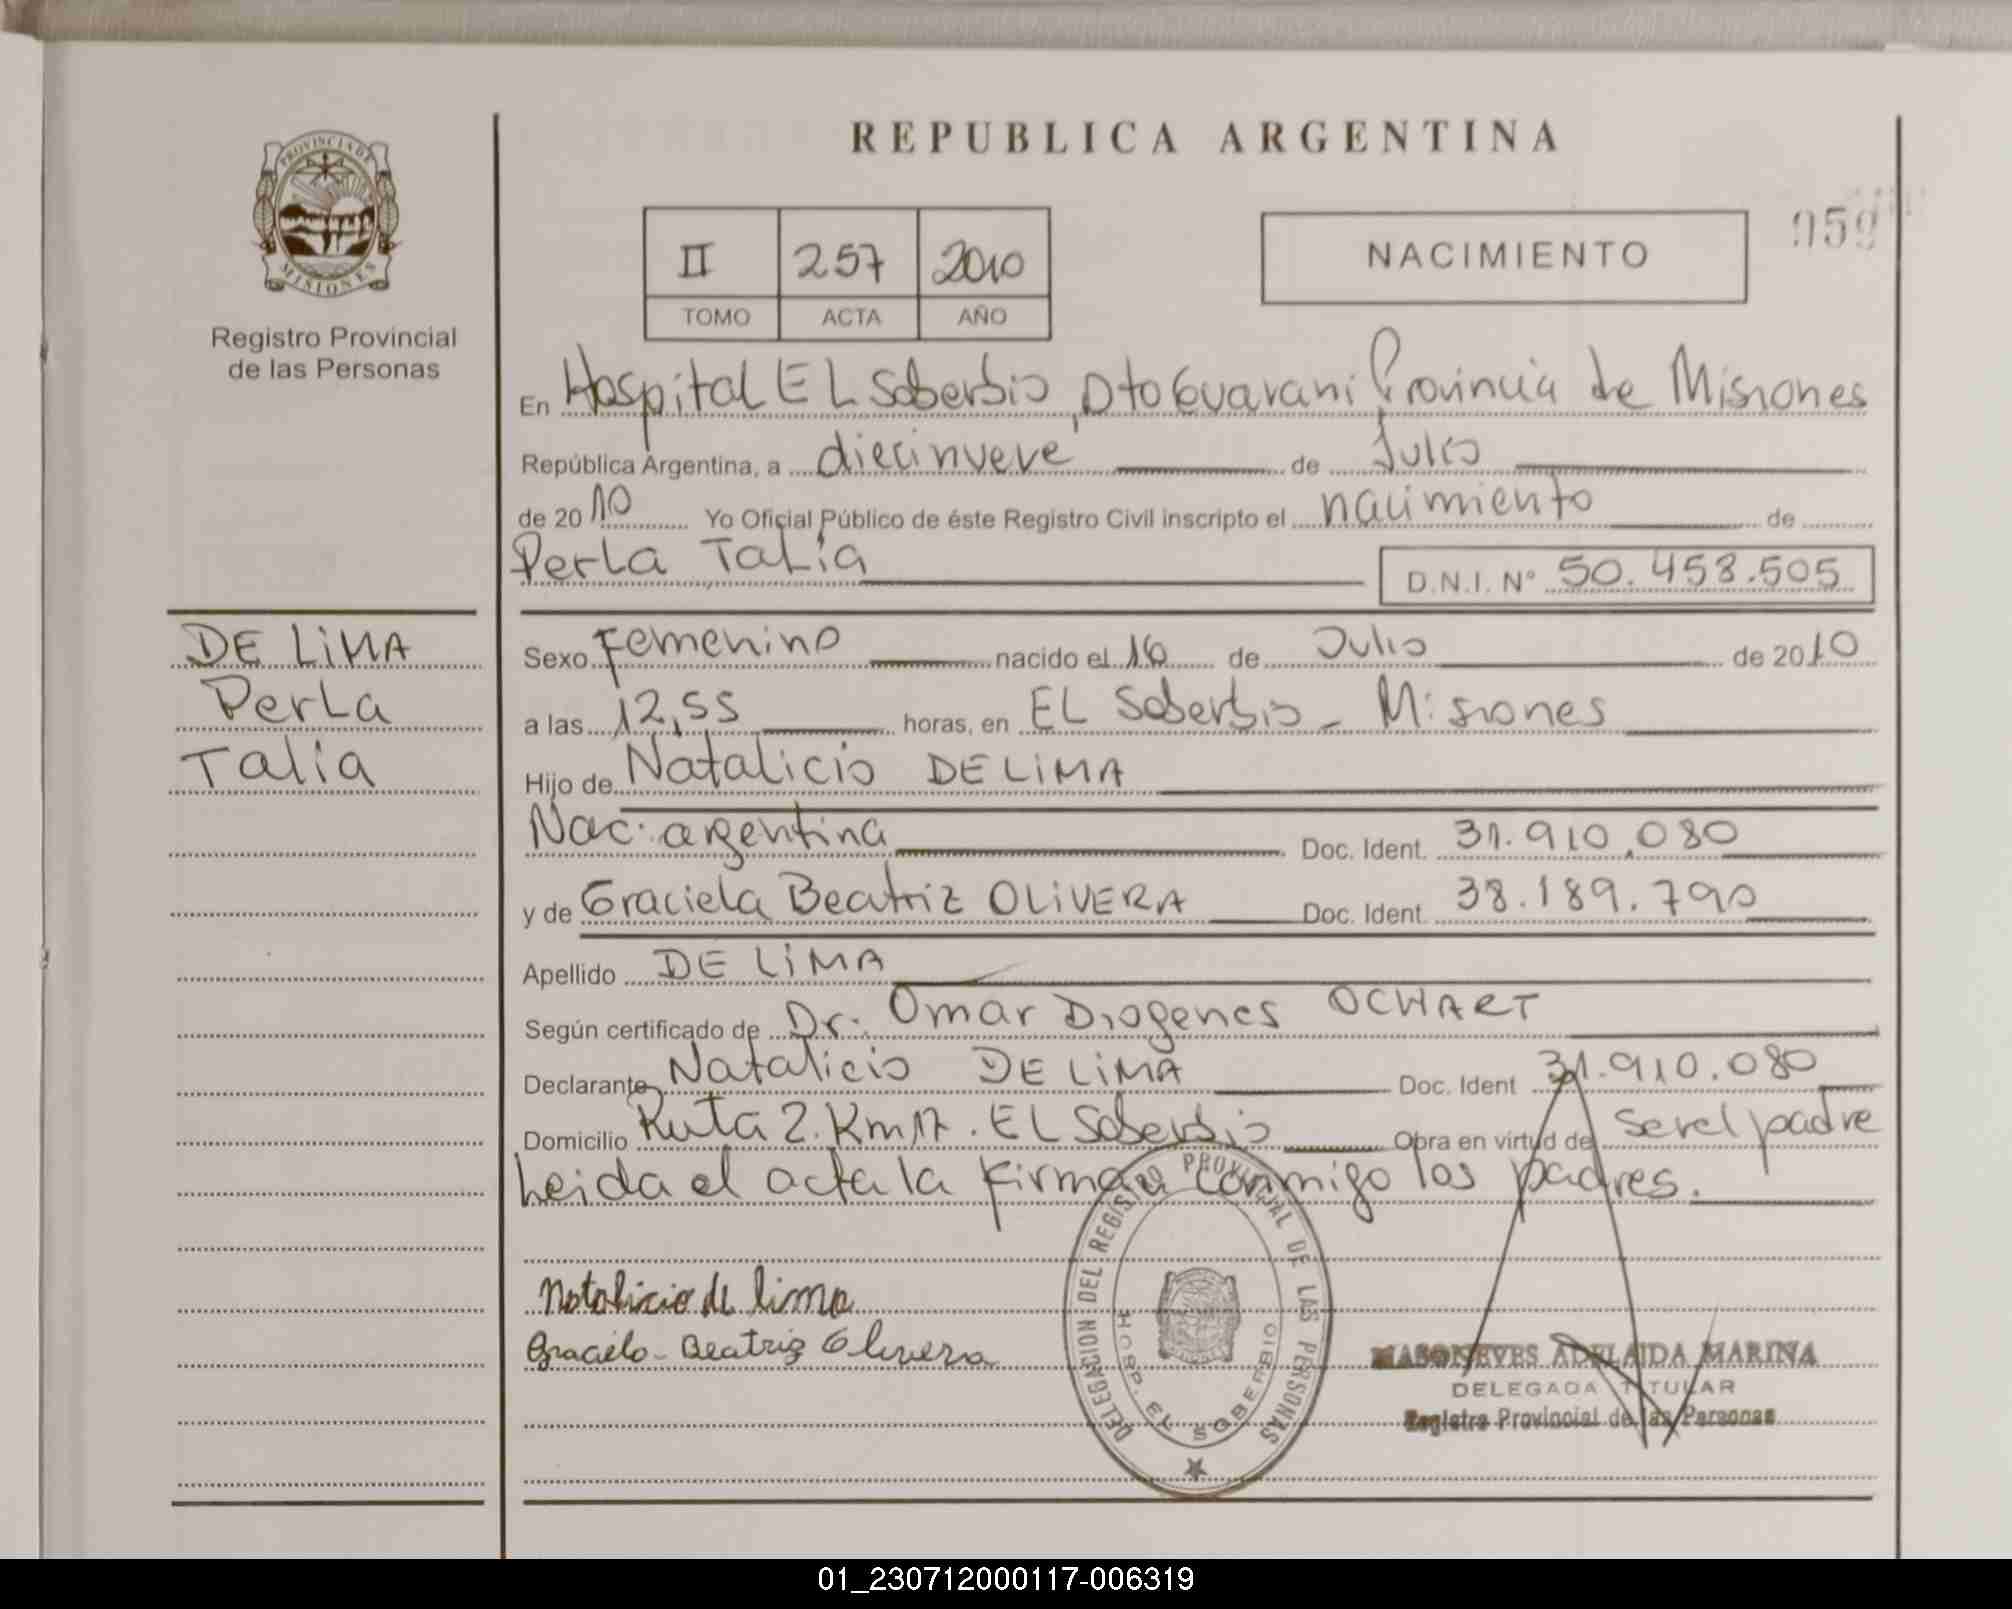 REPUBLICA ARGENTINA
PROVINCIA DE MISIONES
Registro Provincial
de las Personas
II 257 2010
TOMO ACTA AÑO
NACIMIENTO
959
En Hospital EL Soberbio, Dto Guarani Provincia de Misiones
República Argentina, a diecinueve de Julio
de 2010 Yo Oficial Público de éste Registro Civil inscripto el nacimiento de
Perla Talía
D.N.I. N° 50.458.505
DE LiMA
Perla
Talía
Sexo Femenino nacido el 16 de Julio de 2010
a las 12,55 horas, en EL Soberbio - Misiones
Hijo de Natalicio DE LiMA
Nac: argentina Doc. Ident. 31.910.080
y de Graciela Beatriz OLiVERA Doc. Ident. 38.189.790
Apellido DE LiMA
Según certificado de Dr. Omar Diogenes OCHART
Declarante Natalicio DE LiMA Doc. Ident 31.910.080
Domicilio Ruta 2. Km 17. EL Soberbio Obra en virtud de ser el padre
Leida el acta la firman conmigo los padres.
Natalicio de lima
Graciela - Beatriz Olivera
DELEGACION DEL REGISTRO PROVINCIAL DE LAS PERSONAS
HOSP. EL SOBERBIO
MASONEVES ADELAIDA MARINA
DELEGADA TITULAR
Registro Provincial de las Personas
01_230712000117-006319